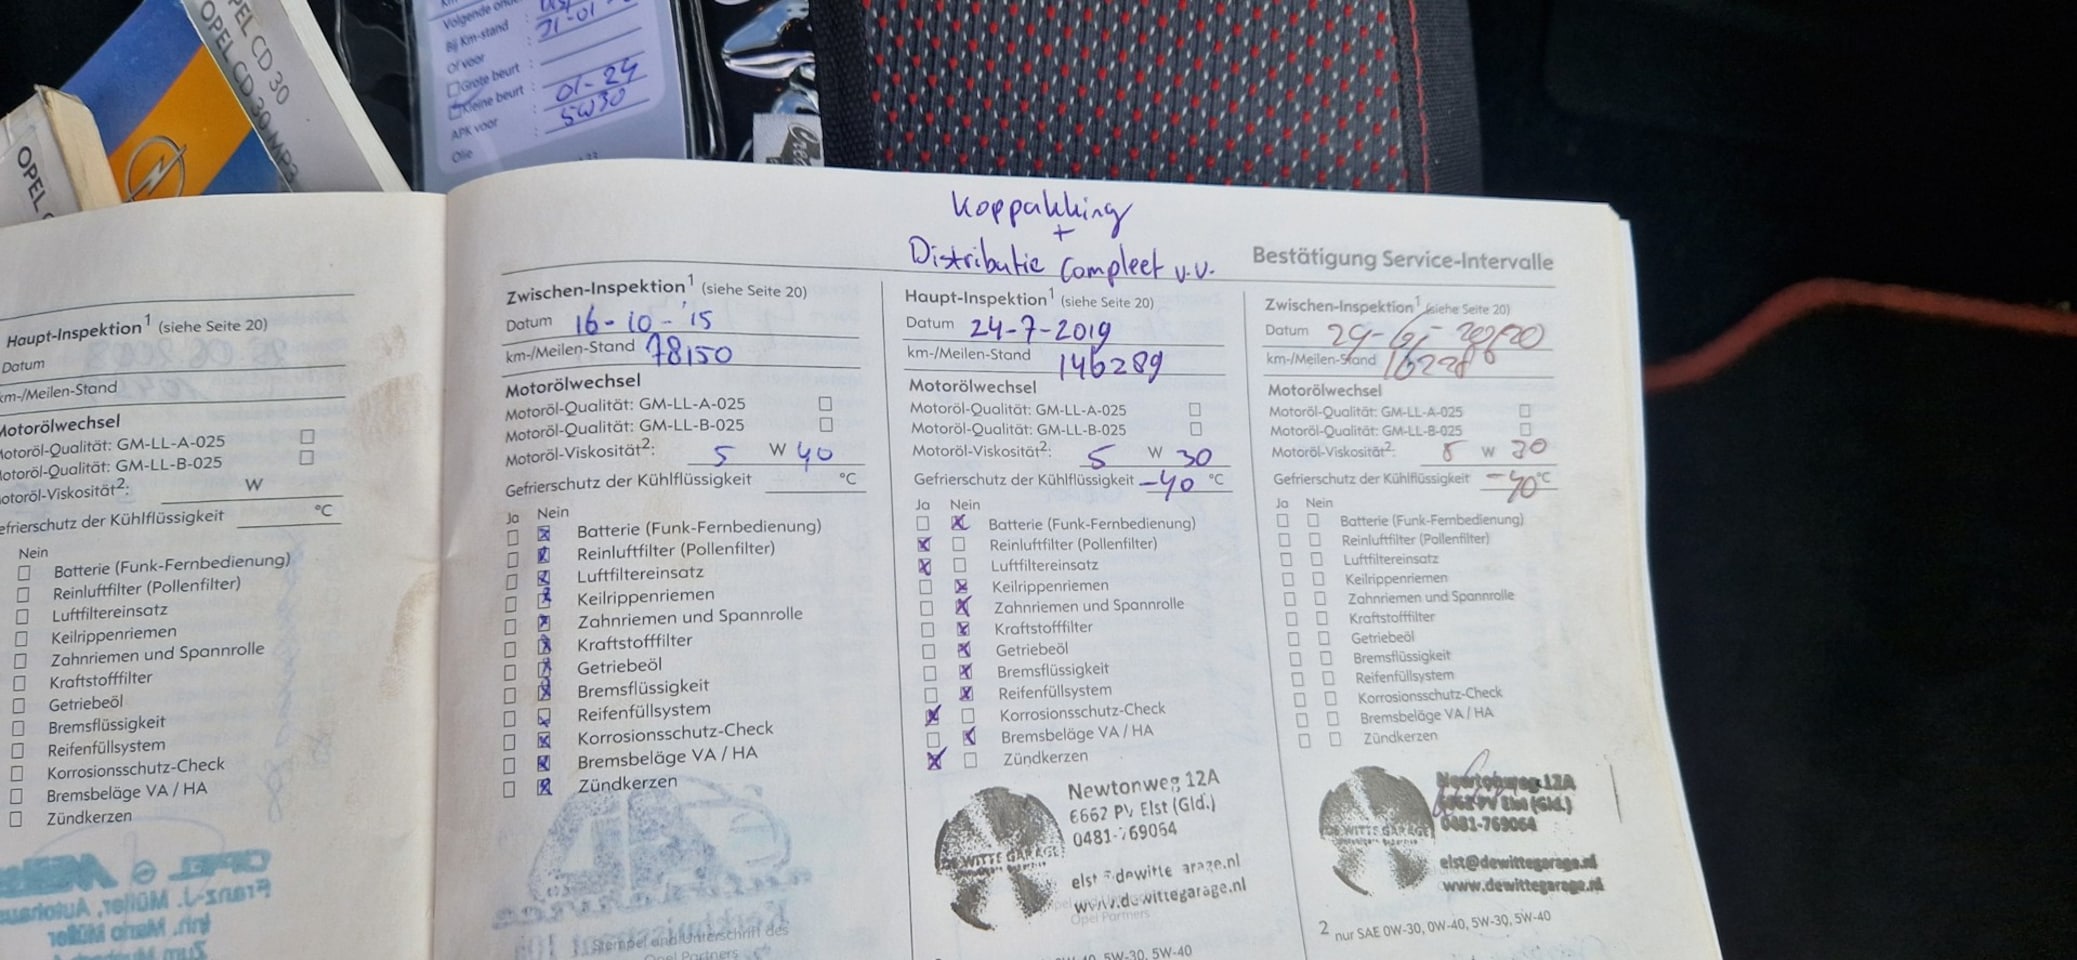 OPEL CD 30
OPEL CD 30 MP3
OPEL
Volgende
Bij Km-stand
Of voor
Grote beurt :
Kleine beurt : 01-24
APK voor : 5W30
Olie
Koppakking
+
Distributie Compleet v.v.
Bestätigung Service-Intervalle
Haupt-Inspektion¹ (siehe Seite 20)
Datum
km-/Meilen-Stand
Motorölwechsel
Motoröl-Qualität: GM-LL-A-025
Motoröl-Qualität: GM-LL-B-025
Motoröl-Viskosität²: W
Gefrierschutz der Kühlflüssigkeit °C
Nein
Batterie (Funk-Fernbedienung)
Reinluftfilter (Pollenfilter)
Luftfiltereinsatz
Keilrippenriemen
Zahnriemen und Spannrolle
Kraftstofffilter
Getriebeöl
Bremsflüssigkeit
Reifenfüllsystem
Korrosionsschutz-Check
Bremsbeläge VA / HA
Zündkerzen
Zwischen-Inspektion¹ (siehe Seite 20)
Datum 16-10-'15
km-/Meilen-Stand 78150
Motorölwechsel
Motoröl-Qualität: GM-LL-A-025
Motoröl-Qualität: GM-LL-B-025
Motoröl-Viskosität²: 5 W 40
Gefrierschutz der Kühlflüssigkeit °C
Ja Nein
Batterie (Funk-Fernbedienung)
Reinluftfilter (Pollenfilter)
Luftfiltereinsatz
Keilrippenriemen
Zahnriemen und Spannrolle
Kraftstofffilter
Getriebeöl
Bremsflüssigkeit
Reifenfüllsystem
Korrosionsschutz-Check
Bremsbeläge VA / HA
Zündkerzen
Stempel und Unterschrift des
Opel Partners
Haupt-Inspektion¹ (siehe Seite 20)
Datum 24-7-2019
km-/Meilen-Stand 146289
Motorölwechsel
Motoröl-Qualität: GM-LL-A-025
Motoröl-Qualität: GM-LL-B-025
Motoröl-Viskosität²: 5 W 30
Gefrierschutz der Kühlflüssigkeit -40 °C
Ja Nein
Batterie (Funk-Fernbedienung)
Reinluftfilter (Pollenfilter)
Luftfiltereinsatz
Keilrippenriemen
Zahnriemen und Spannrolle
Kraftstofffilter
Getriebeöl
Bremsflüssigkeit
Reifenfüllsystem
Korrosionsschutz-Check
Bremsbeläge VA / HA
Zündkerzen
Newtonweg 12A
6662 PV Elst (Gld.)
0481-769064
DE WITTE GARAGE
www.dewittegarage.nl
Opel Partners
5W-30, 5W-40
Zwischen-Inspektion¹ (siehe Seite 20)
Datum
km-/Meilen-Stand
Motorölwechsel
Motoröl-Qualität: GM-LL-A-025
Motoröl-Qualität: GM-LL-B-025
Motoröl-Viskosität²: 5 W 30
Gefrierschutz der Kühlflüssigkeit -40 °C
Ja Nein
Batterie (Funk-Fernbedienung)
Reinluftfilter (Pollenfilter)
Luftfiltereinsatz
Keilrippenriemen
Zahnriemen und Spannrolle
Kraftstofffilter
Getriebeöl
Bremsflüssigkeit
Reifenfüllsystem
Korrosionsschutz-Check
Bremsbeläge VA / HA
Zündkerzen
Newtonweg 12A
6662 PV Elst (Gld.)
0481-769064
DE WITTE GARAGE
elst@dewittegarage.nl
www.dewittegarage.nl
2 nur SAE 0W-30, 0W-40, 5W-30, 5W-40